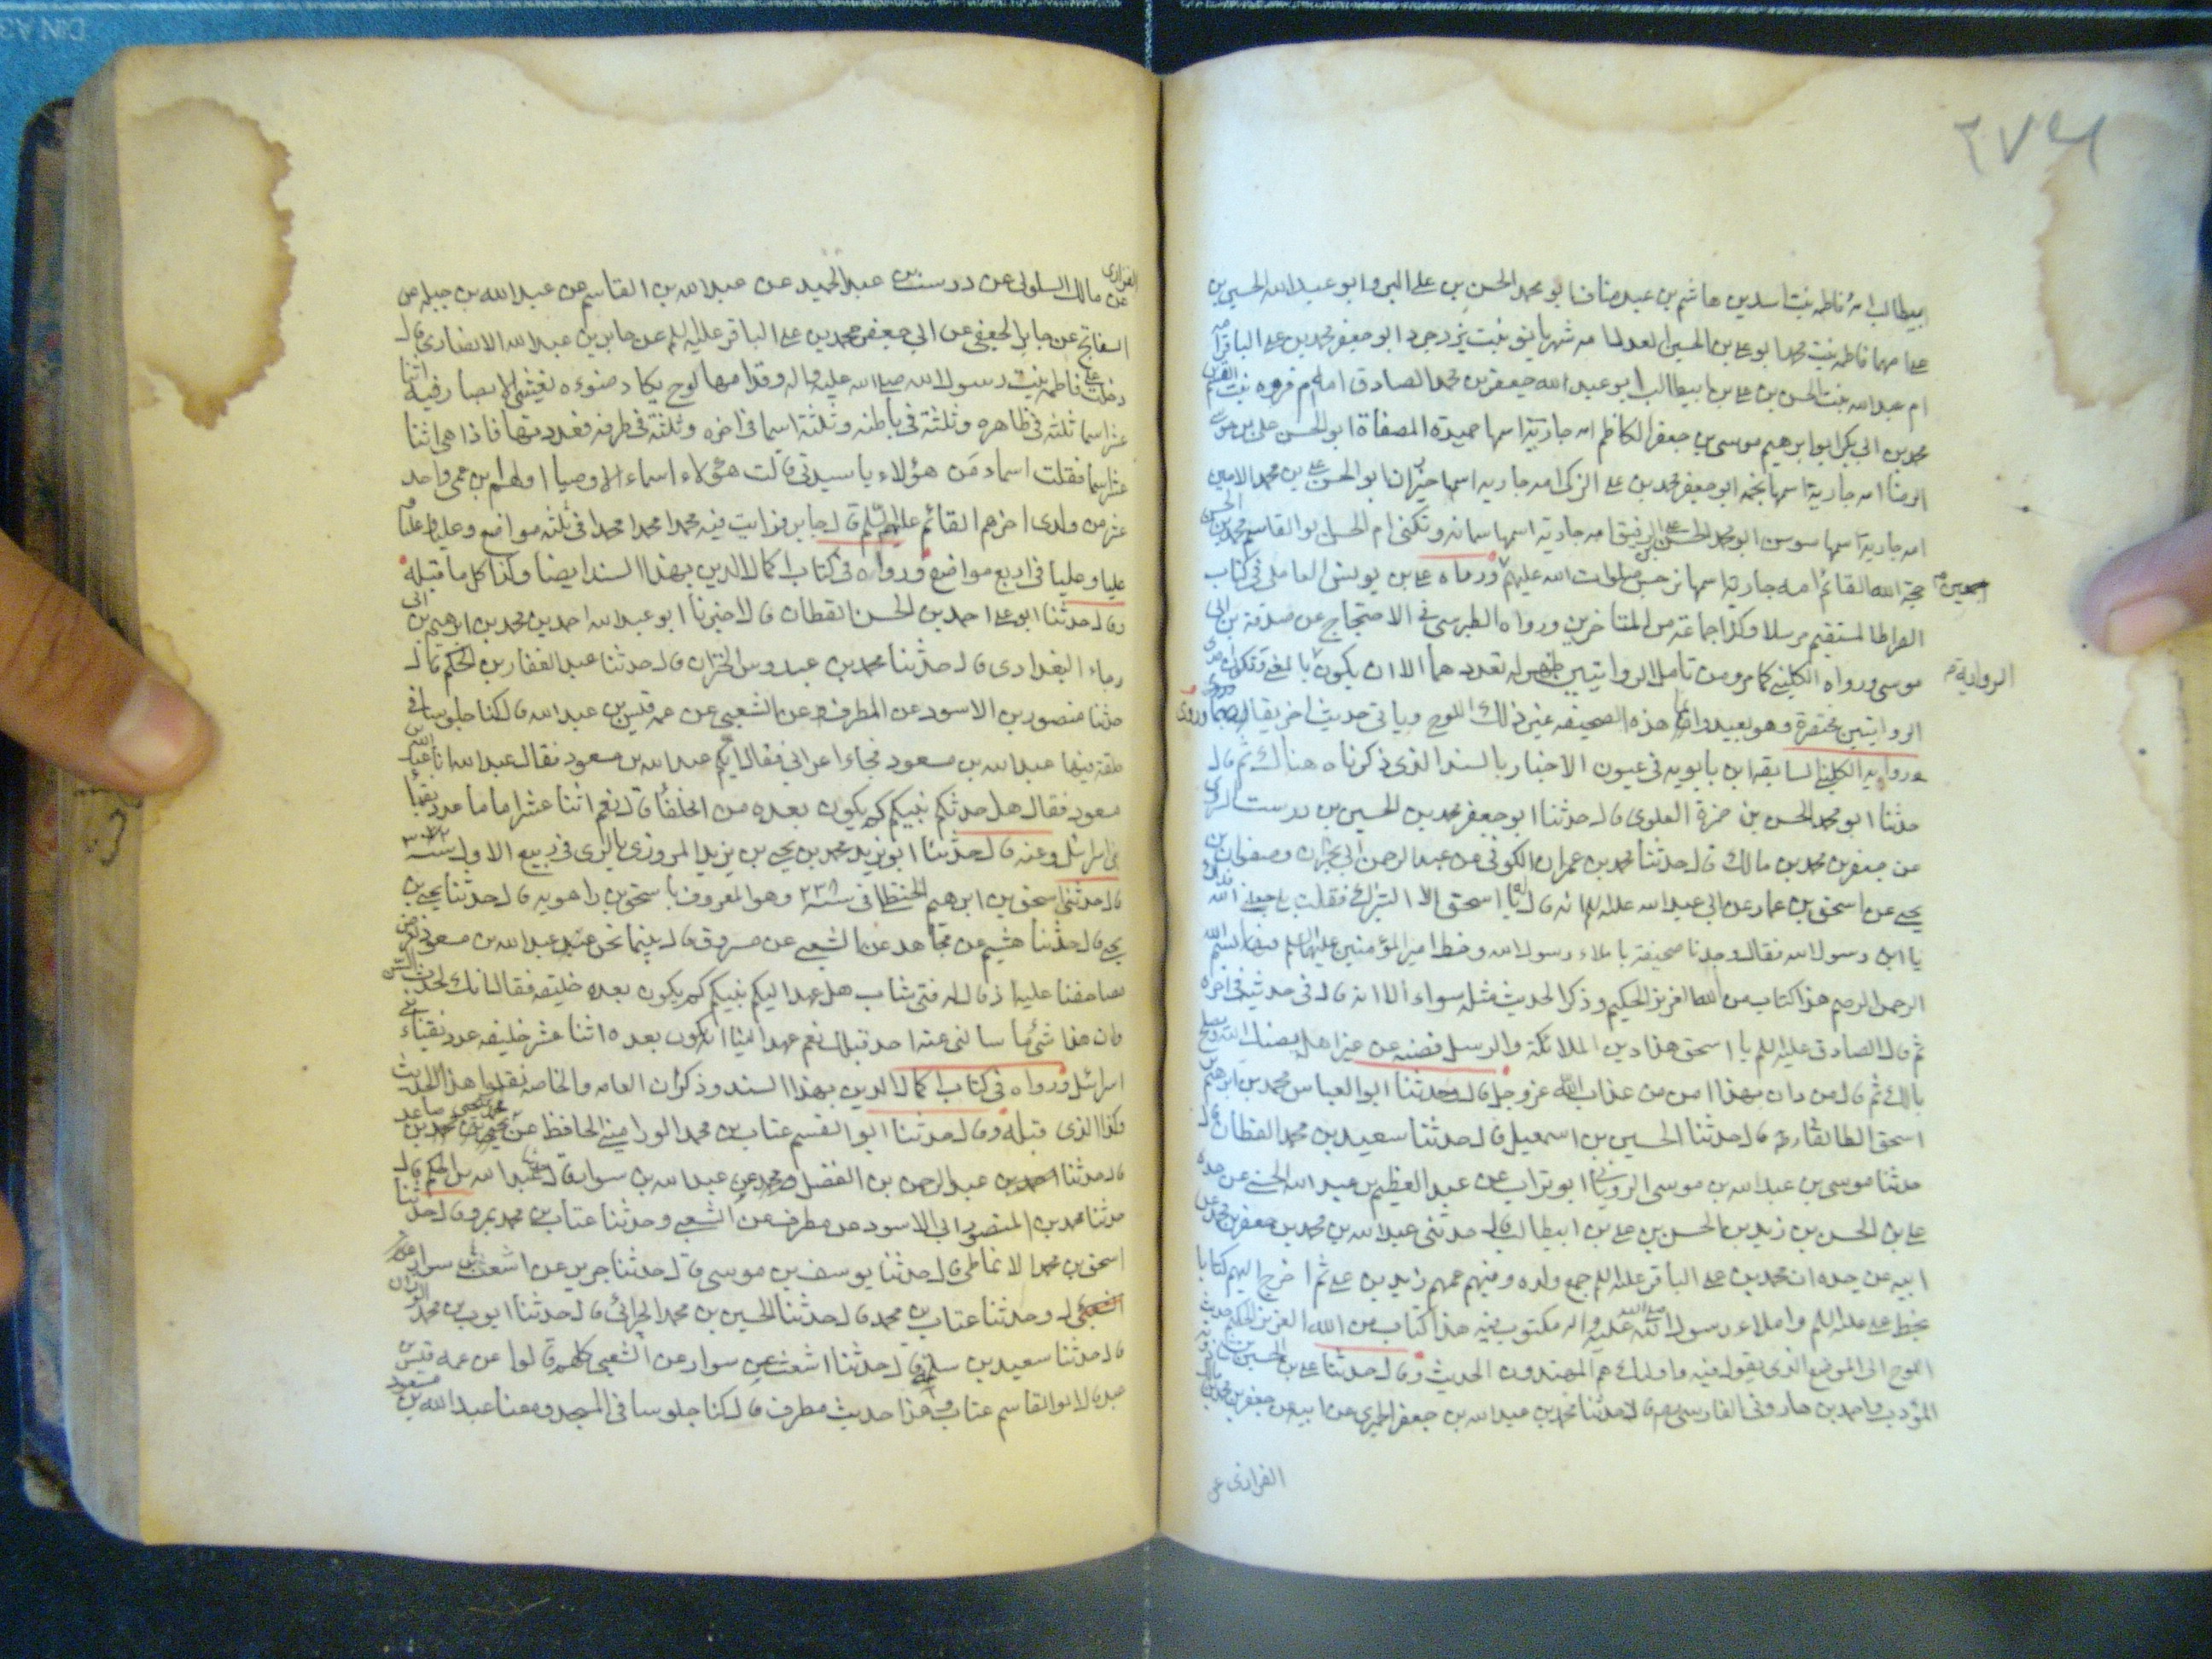 ٢٧٤
ابيطالب امه فاطمه بنت اسد بن هاشم بن عبد مناف ابو محمد الحسن بن على البر وابو عبد الله الحسين بن
على امهما فاطمه بنت محمد ابو محمد على بن الحسين العدل امه شهربانويه بنت يزدجرد ابو جعفر محمد بن على الباقر امه
ام عبد الله بنت الحسن بن على بن ابيطالب ابو عبد الله جعفر بن محمد الصادق امه ام فروه بنت القسم بن
محمد بن ابى بكر ابو ابرهيم موسى بن جعفر الكاظم امه جارية اسمها حميدة المصفاة ابو الحسن على بن موسى
الرضا امه جارية اسمها نجمه ابو جعفر محمد بن على الزكى امه جاريه اسمها خيزران ابو الحسن على بن محمد الامين
امه جارية اسمها سوسن ابو محمد الحسن بن على الرفيق امه جارية اسمها سمانه وتكنى ام الحسن ابو القاسم محمد بن الحسن
حجة الله القائم امه جارية اسمها نرجس صلوات الله عليهم ورواه على بن يونس العاملى فى كتاب
الصراط المستقيم مرسلا وكذا جماعة من المتاخرين ورواه الطبرسى فى الاحتجاج عن صدقة بن ابى
موسى ورواه الكلينى كما مر ومن تامل الروايتين ظهر له تعددهما الا ان يكون بالمعنى وتكون احدى
الرواية
الروايتين مختصرة وهو بعيد واما هذه الصحيفه غير ذلك اللوح وياتى حديث اخر يقاربهما وروى
ورواية الكلينى السابقه ابن بابويه فى عيون الاخبار بالسند الذى ذكرناه هناك ثم قال
حدثنا ابو محمد الحسن بن حمزة العلوى قال حدثنا ابو جعفر محمد بن الحسين بن درست السروى
عن جعفر بن محمد بن مالك قال حدثنا محمد بن عمران الكوفى عن عبد الرحمن ابى نجران وصفوان بن
يحيى عن اسحق بن عمار عن ابى عبد الله عليه السلم انه قال يا اسحق الا ابشرك فقلت بلى جعلنى الله فداك
يا ابن رسول الله فقال وجدنا صحيفة باملاء رسول الله وخط امير المؤمنين عليهما السلم فيها بسم الله
الرحمن الرحيم هذا كتاب من الله العزيز الحكيم وذكر الحديث مثله سواء الا انه قال فى حديثه فى اخره
ثم قال الصادق عليه السلم يا اسحق هذا دين الملائكة والرسل فصنه عن غير اهله يصنك الله ويصلح
بالك ثم قال من دان بهذا امن من عذاب الله عز وجل قال وحدثنا ابو العباس محمد بن ابرهيم بن
اسحق الطالقانى قال حدثنا الحسين بن اسمعيل قال حدثنا سعيد بن محمد القطان قال
حدثنا موسى بن عبد الله بن موسى الرويانى ابو تراب عن عبد العظيم بن عبد الله الحسنى عن جده
على بن الحسن بن زيد بن الحسن بن على بن ابيطالب قال حدثنى عبد الله بن محمد بن جعفر بن محمد عن
ابيه عن جده ان محمد بن على الباقر عليه السلم جمع ولده وفيهم عمهم زيد بن على ثم اخرج اليهم كتابا
بخط على عليه السلم واملاء رسول الله صلى الله عليه واله مكتوب فيه هذا كتاب من الله العزيز الحكيم حديث
اللوح الى الموضع الذى يقول فيه واولئك هم المهتدون الحديث وقال حدثنا على بن الحسين بن شاذويه
المؤدب واحمد بن هارون الفارسى قالا حدثنا محمد بن عبد الله بن جعفر الحميرى عن ابيه عن جعفر بن محمد بن مالك
الفزارى عن
الفزارى
عن مالك السلولى عن درست بن عبد الحميد عن عبد الله بن القاسم عن عبد الله بن جبله عن
السفاتج عن جابر الجعفى عن ابى جعفر محمد بن على الباقر عليه السلم عن جابر بن عبد الله الانصارى قال
دخلت على فاطمه بنت رسول الله صلى الله عليه واله وقدامها لوح يكاد ضوءه يغشى الابصار فيه اثنا
عشر اسما ثلثة فى ظاهره وثلثة فى باطنه وثلثة اسما فى اخره وثلثة فى طرفه فعددتها فاذا هى اثنا
عشر اسما فقلت اسماء من هؤلاء يا سيدتى قالت هؤلاء اسماء الاوصيا اولهم ابن عمى واحد
عشر من ولدى اخرهم القائم عليهم السلم قال جابر فرايت فيه محمدا محمدا محمدا فى ثلثة مواضع وعليا وعليا
وعليا وعليا فى اربع مواضع ورواه فى كتاب اكمال الدين بهذا السند ايضا وكذا كل ما قبله
وقال حدثنا ابو على احمد بن الحسن القطان قال اخبرنا ابو عبد الله احمد بن محمد بن ابرهيم بن ابى
رجاء البغدادى قال حدثنا محمد بن عبدوس الحرانى قال حدثنا عبد الغفار بن الحكم قال
حدثنا منصور بن الاسود عن المطرف عن الشعبى عن عمه قيس بن عبد الله قال كنا جلوسا فى
حلقة فيها عبد الله بن مسعود فجاء اعرابى فقال ايكم عبد الله بن مسعود فقال عبد الله انا عبد الله بن
مسعود فقال هل حدثكم نبيكم كم يكون بعده من الخلفا قال نعم اثنا عشر اماما عدد نقباء
بنى اسرائيل وعنه قال حدثنا ابو يزيد محمد بن يحيى بن يزيد المروزى بالرى فى ربيع الاول سنة ٣٠٢
قال حدثنى اسحق بن ابرهيم الحنظلى فى سنة ٢٣٨ وهو المعروف باسحق بن راهويه قال حدثنا يحيى بن
يحيى قال حدثنا هشيم عن مجاهد عن الشعبى عن مسروق قال بينما نحن عند عبد الله بن مسعود نعرض
مصاحفنا عليه اذ قال له فتى شاب هل عهد اليكم نبيكم كم يكون بعده خليفه فقال انك لحدث السن
وان هذا شئ ما سالنى عنه احد قبلك نعم عهد الينا ان يكون بعده اثنا عشر خليفه عدد نقباء بنى
اسرائيل ورواه فى كتاب اكمال الدين بهذا السند وذكر ان العامه والخاصه نقلوا هذا الحديث
وكذا الذى قبله وقال حدثنا ابو القسم عتاب بن محمد الورامينى الحافظ عن يحيى بن محمد بن صاعد
قال حدثنا احمد بن عبد الرحمن بن الفضل ومحمد بن عبد الله بن سوار قال حدثنا عبد الله بن الحكم قال
حدثنا محمد بن المنصور ابى الاسود عن مطرف عن الشعبى وحدثنا عتاب بن محمد قال حدثنا
اسحق بن محمد الانماطى قال حدثنا يوسف بن موسى قال حدثنا جرير عن اشعث بن سوار عن
الشعبى وحدثنا عتاب بن محمد قال حدثنا الحسين بن محمد الحرانى قال حدثنا ايوب بن محمد الوزان
قال حدثنا سعيد بن سلمة قال حدثنا اشعث عن سوار عن الشعبى كلهم قالوا عن عمه قيس بن
عبد قال ابو القاسم عتاب وهذا حديث مطرف قال كنا جلوسا فى المسجد ومعنا عبد الله بن مسعود